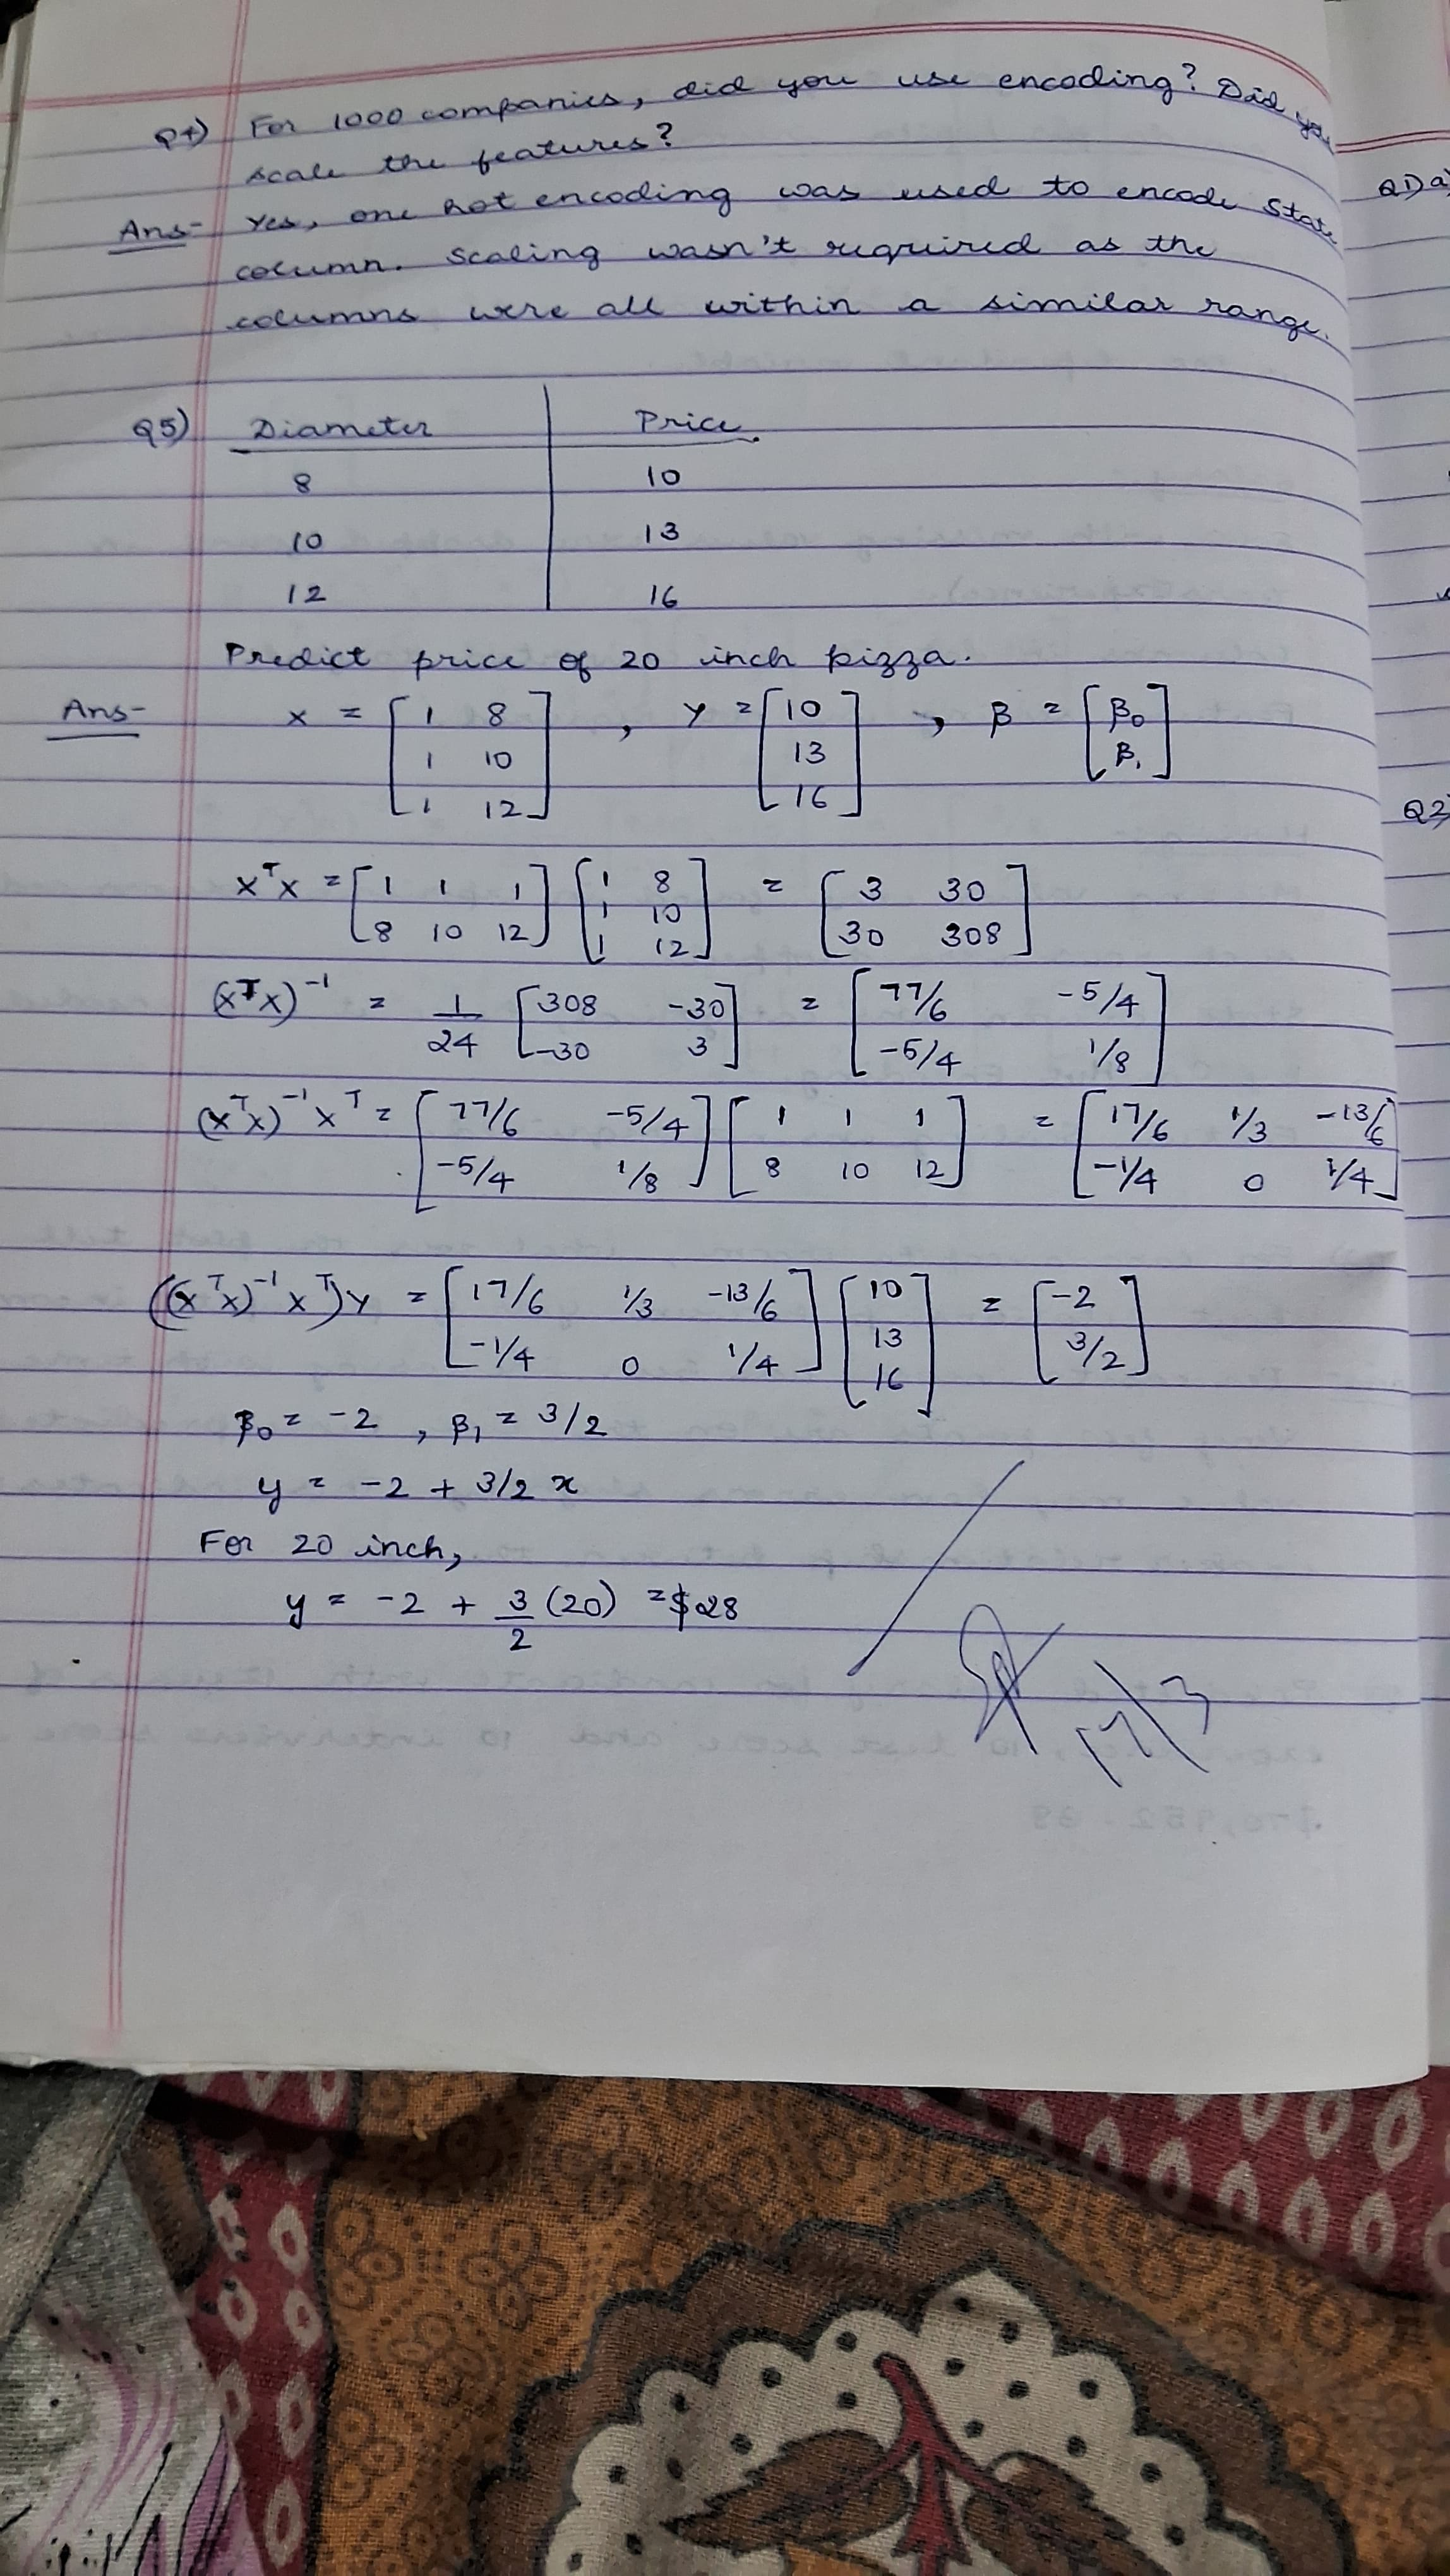 Q4) For 1000 companies, did you use encoding? Did you
scale the features?
Ans- Yes, one hot encoding was used to encode State
column. Scaling wasn't required as the
columns were all within a similar range.
Q5) Diameter Price
8 10
10 13
12 16
Predict price of 20 inch pizza.
Ans- X = [1 8 , Y = [10 , β = [β₀
1 10 13 β₁]
1 12] 16]
XᵀX = [1 1 1 [1 8 = [3 30
8 10 12] 1 10 30 308]
1 12]
(XᵀX)⁻¹ = 1/24 [308 -30 = [77/6 -5/4
-30 3] -5/4 1/8]
(XᵀX)⁻¹Xᵀ = [77/6 -5/4 [1 1 1 = [17/6 1/3 -13/6
-5/4 1/8] 8 10 12] -1/4 0 1/4]
((XᵀX)⁻¹Xᵀ)Y = [17/6 1/3 -13/6 [10 = [-2
-1/4 0 1/4] 13 3/2]
16]
β₀ = -2 , β₁ = 3/2
y = -2 + 3/2 x
For 20 inch,
y = -2 + 3/2 (20) = $28
Q1) a)
Q2)